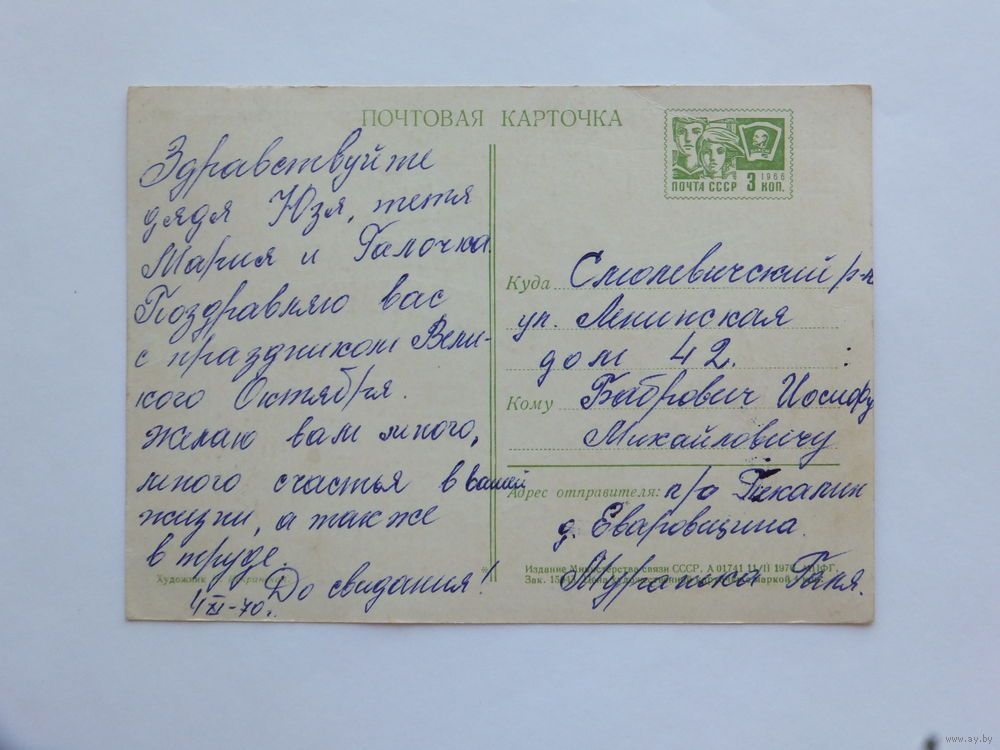 ПОЧТОВАЯ КАРТОЧКА
ПОЧТА СССР 3 КОП.
1966
Здравствуйте
дядя Юзя, тетя
Мария и Галочка.
Поздравляю вас
с праздником Вели-
кого Октября.
Желаю вам много,
много счастья в вашей
жизни, а также
в труде.
До свидания!
4 XI-70г.
Художник
Куда Смолевичский р-н
ул. Ленинская
дом 42.
Кому Бобрович Иосифу
Михайловичу
Адрес отправителя: п/о Пекалин
д. Еваровщина
Таня.
Издание Министерства связи СССР. А 01741
Зак.
www.ay.by